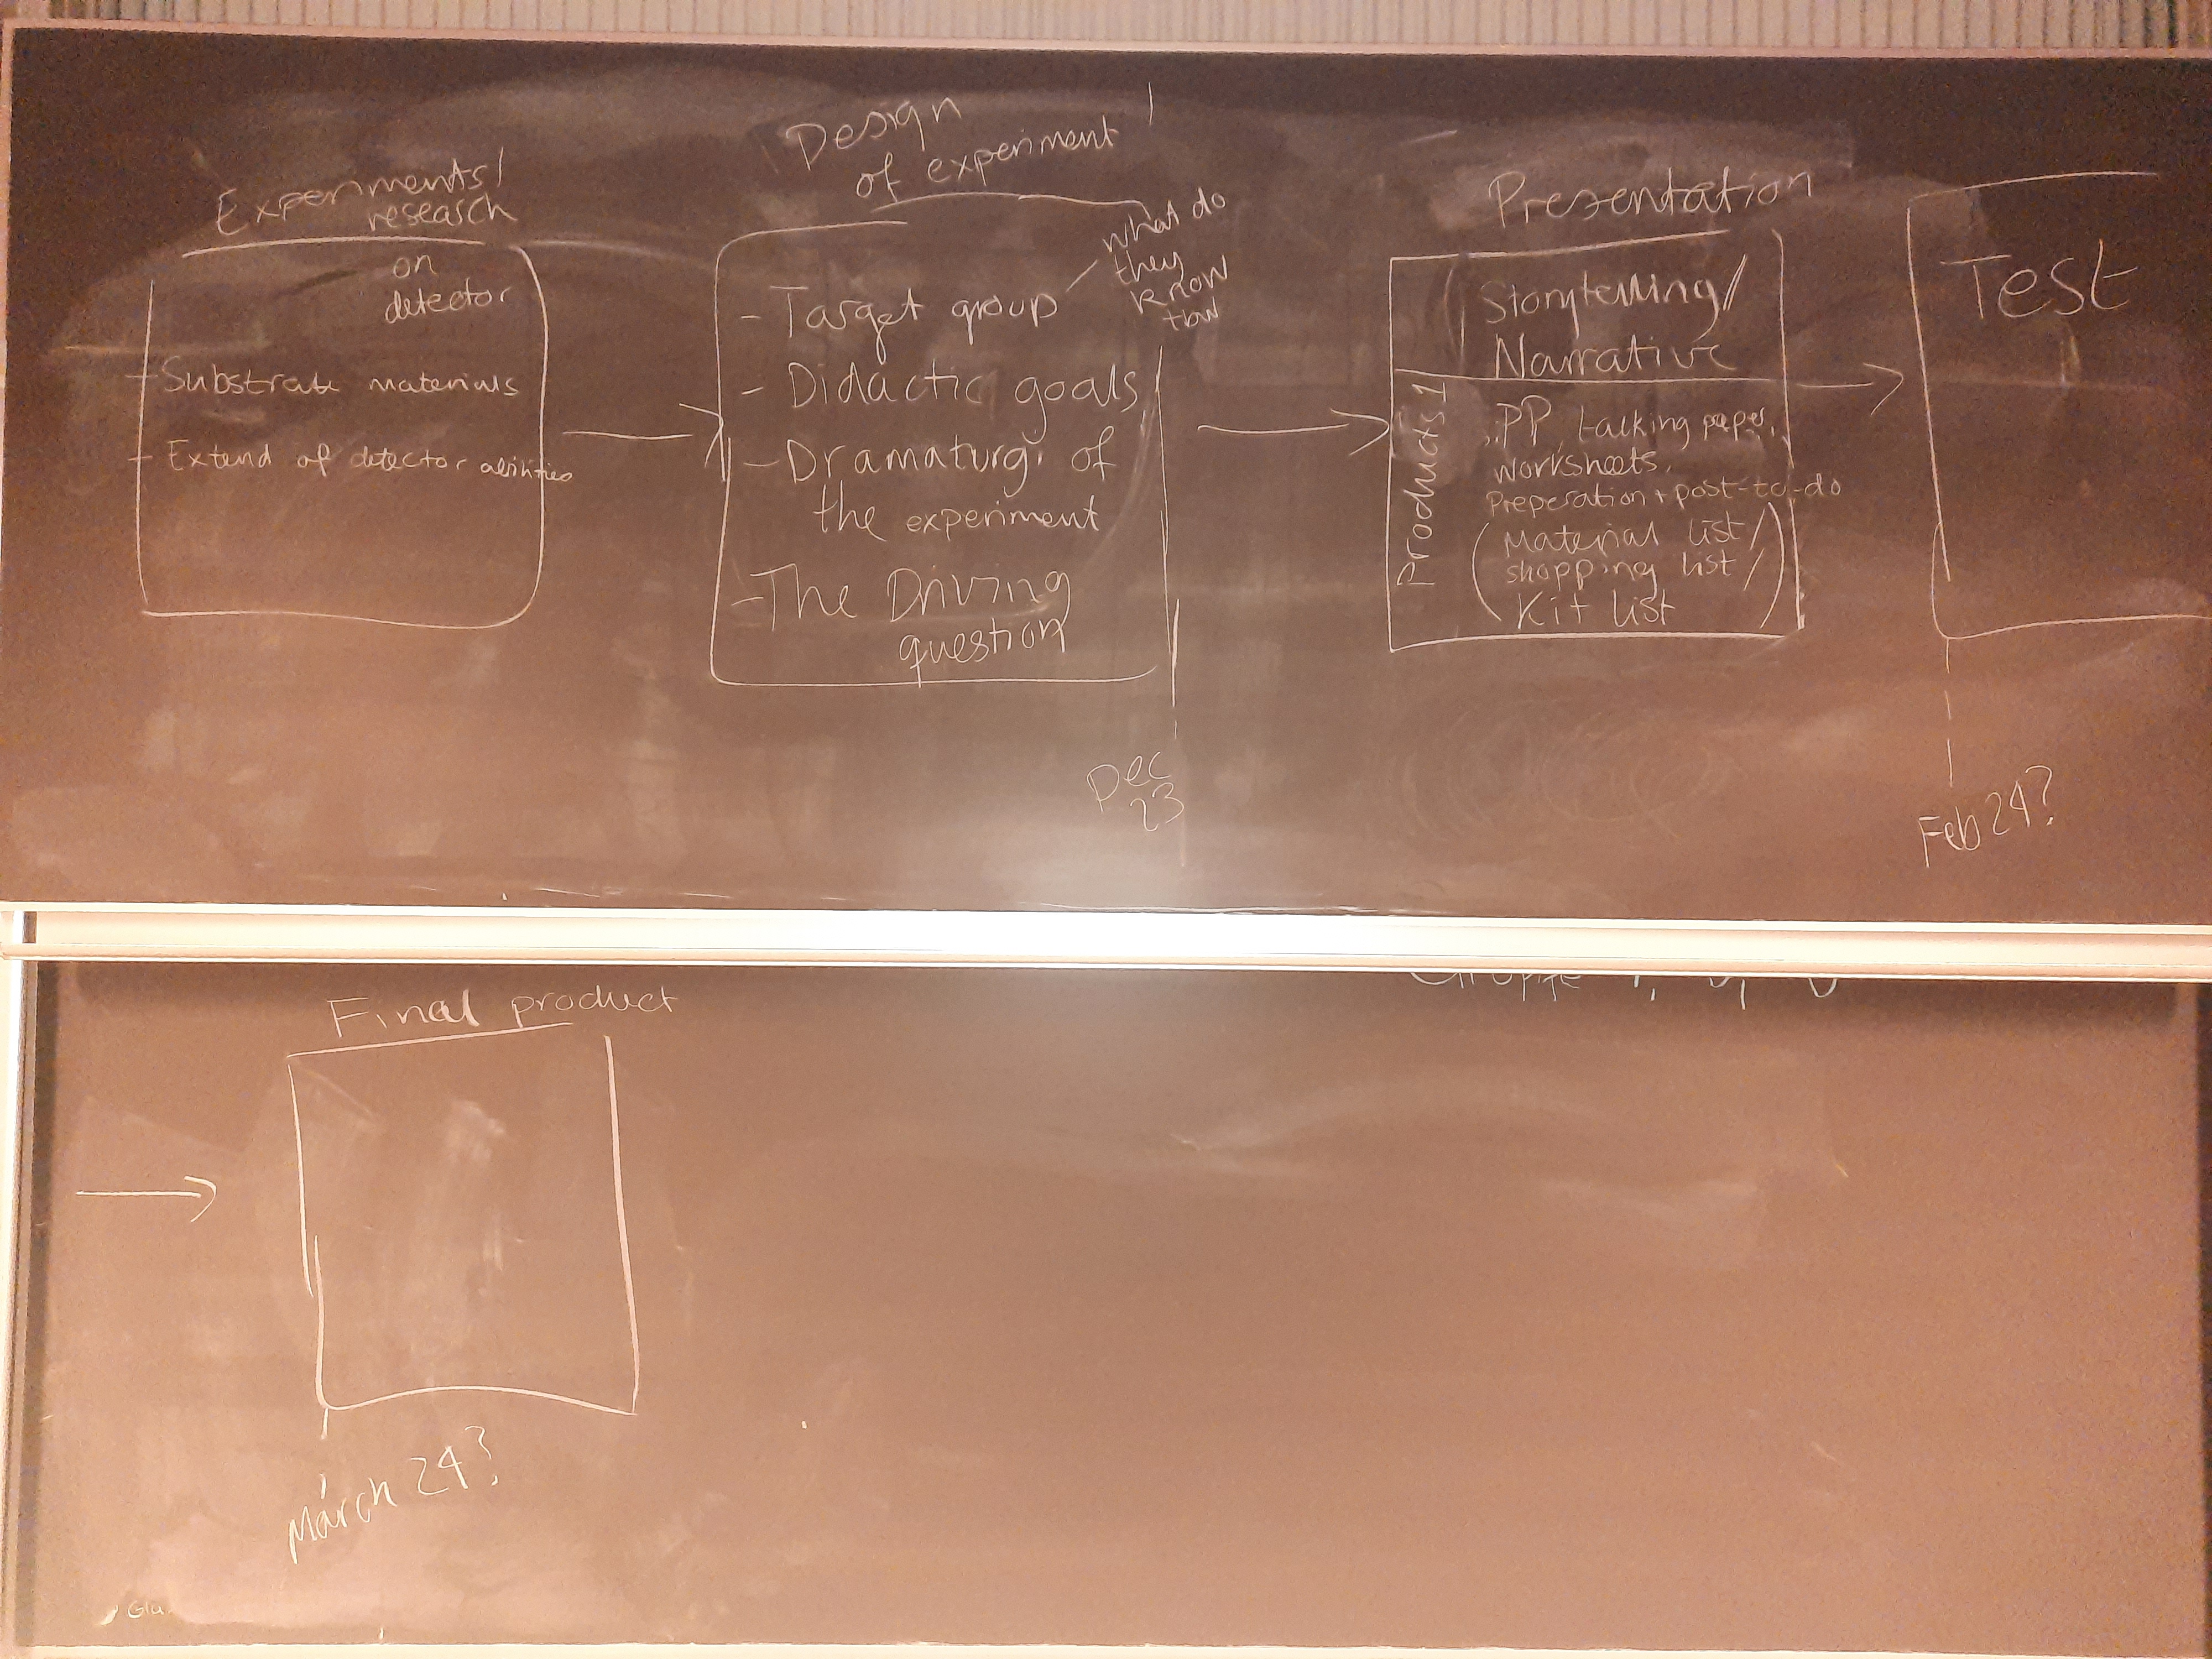 Experiments/
research
on
detector
- Substrate materials
- Extend of detector abilities
Design
of experiment
- Target group
what do
they
know
- Didactic goals
- Dramaturgi of
the experiment
- The Driving
question
Dec
23
Presentation
Storytelling/
Narrative
Products 1
PP, talking paper,
worksheets,
Preperation + post-to-do
(Material list/
shopping list/
Kit list)
Test
Feb 24?
Final product
March 24?